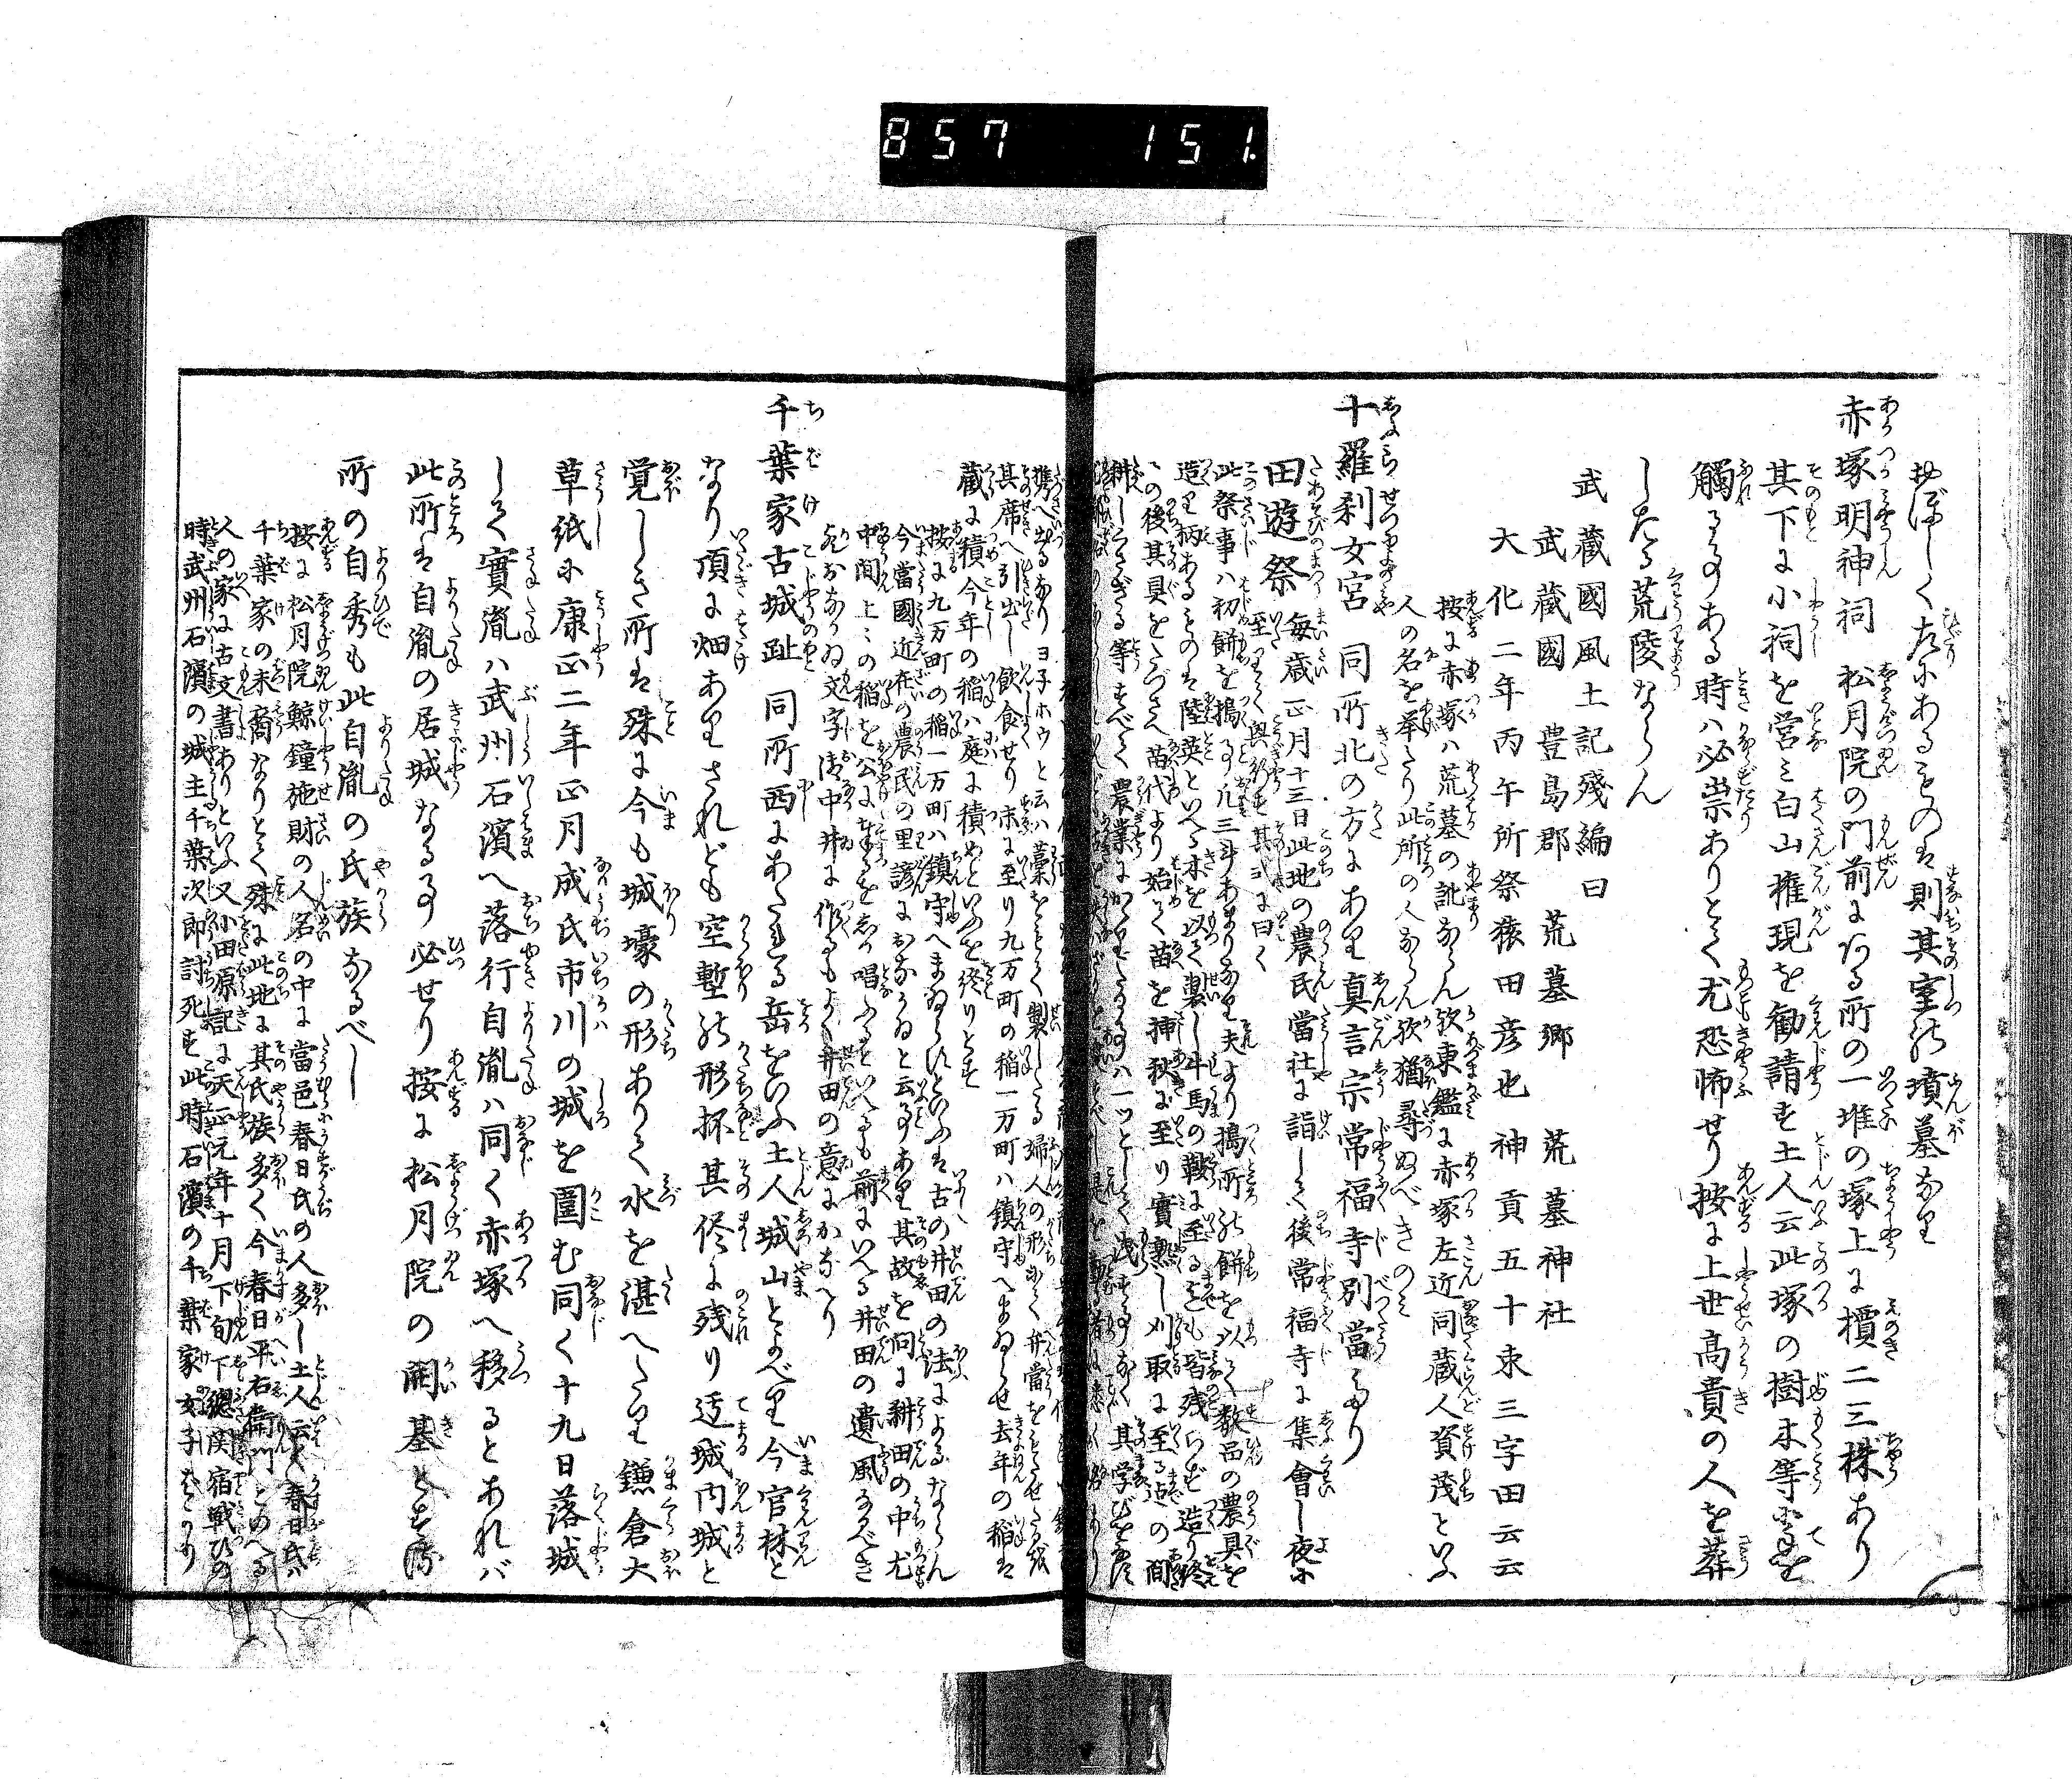 857 151.
おぼしく左にあるものは則其室の墳墓なり
赤塚明神祠 松月院の門前にある所の一堆の塚上に檟二三株あり
其下に小祠を営み白山権現を勧請す土人云此塚の樹木等に手を
觸るゝのある時ハ必祟ありとて尤恐怖せり按に上世高貴の人を葬
したる荒陵ならん
武蔵國風土記殘編曰
武蔵國 豊島郡 荒墓郷 荒墓神社
大化二年丙午所祭猿田彦也 神貢五十束三字田云云
按に赤塚ハ荒墓の訛ならん欤東鑑に赤塚左近同蔵人資茂といふ
人の名を挙たり此所の人ならん欤猶尋ぬべきのミ
十羅刹女宮 同所北の方にあり真言宗常福寺別當たり
田遊祭 毎歳正月十三日此地の農民當社に詣して後常福寺に集會し夜に
至りて興行す其式に曰く
此祭事ハ初餅を搗る事凡三斗あまりなり夫より搗所の餅を以て數品の農具を
造り柄あるものは陸英といへる木を以て製し牛馬の鞍に至る迄も皆残らず造り終
この後其具をたづさえ苗代より始て苗を挿秋に至り實熟し刈取に至る迄の間
耕しうなぎる等すべて農業にかゝりたる事ハ一ツとして洩す事なく其学びを
携へ出るなりヨネホウと云ハ藁をもて製したる婦人の形にて弁當をもたせたる
其席へ引出し飲食せり末に至り九万町の稲一万町ハ鎮守へまゐらせ去年の稲は
蔵に積今年の稲ハ庭に積めといふを終りとす
按に九万町の稲一万町ハ鎮守へまゐらすといふは古の井田の法によるならん
今當國近在の農民の里諺におなかゐと云事あり其故を問に耕田の中尤
中間上々の稲を公に奉るを唱ふるといへるも前にいへる井田の遺風なるべき
文字御中井に作るもよく井田の意にかなへり
千葉家古城趾 同所西にあたれる岳をいふ土人城山とよべり今官林と
なり頂に畑ありされども空塹の形抔其侭に残り适城内城と
覚しき所は殊に今も城壕の形ありて水を湛へたり鎌倉大
草紙に康正二年正月成氏市川の城を圍む同く十九日落城
して實胤ハ武州石濱へ落行自胤ハ同く赤塚へ移るとあれバ
此所は自胤の居城なる事必せり按に松月院の開基とする
所の自秀も此自胤の氏族なるべし
按に松月院鯨鐘施財の人名の中に當邑春日氏の人多し土人云春日氏ハ
千葉家の末裔なりとて殊に此地に其氏族多く今春日平右衛門といへる
人の家に古文書ありといふ又小田原記に天正元年十月下旬下総関宿戦ひの
時武州石濱の城主千葉次郎討死す此時石濱の千葉家女子ばかり